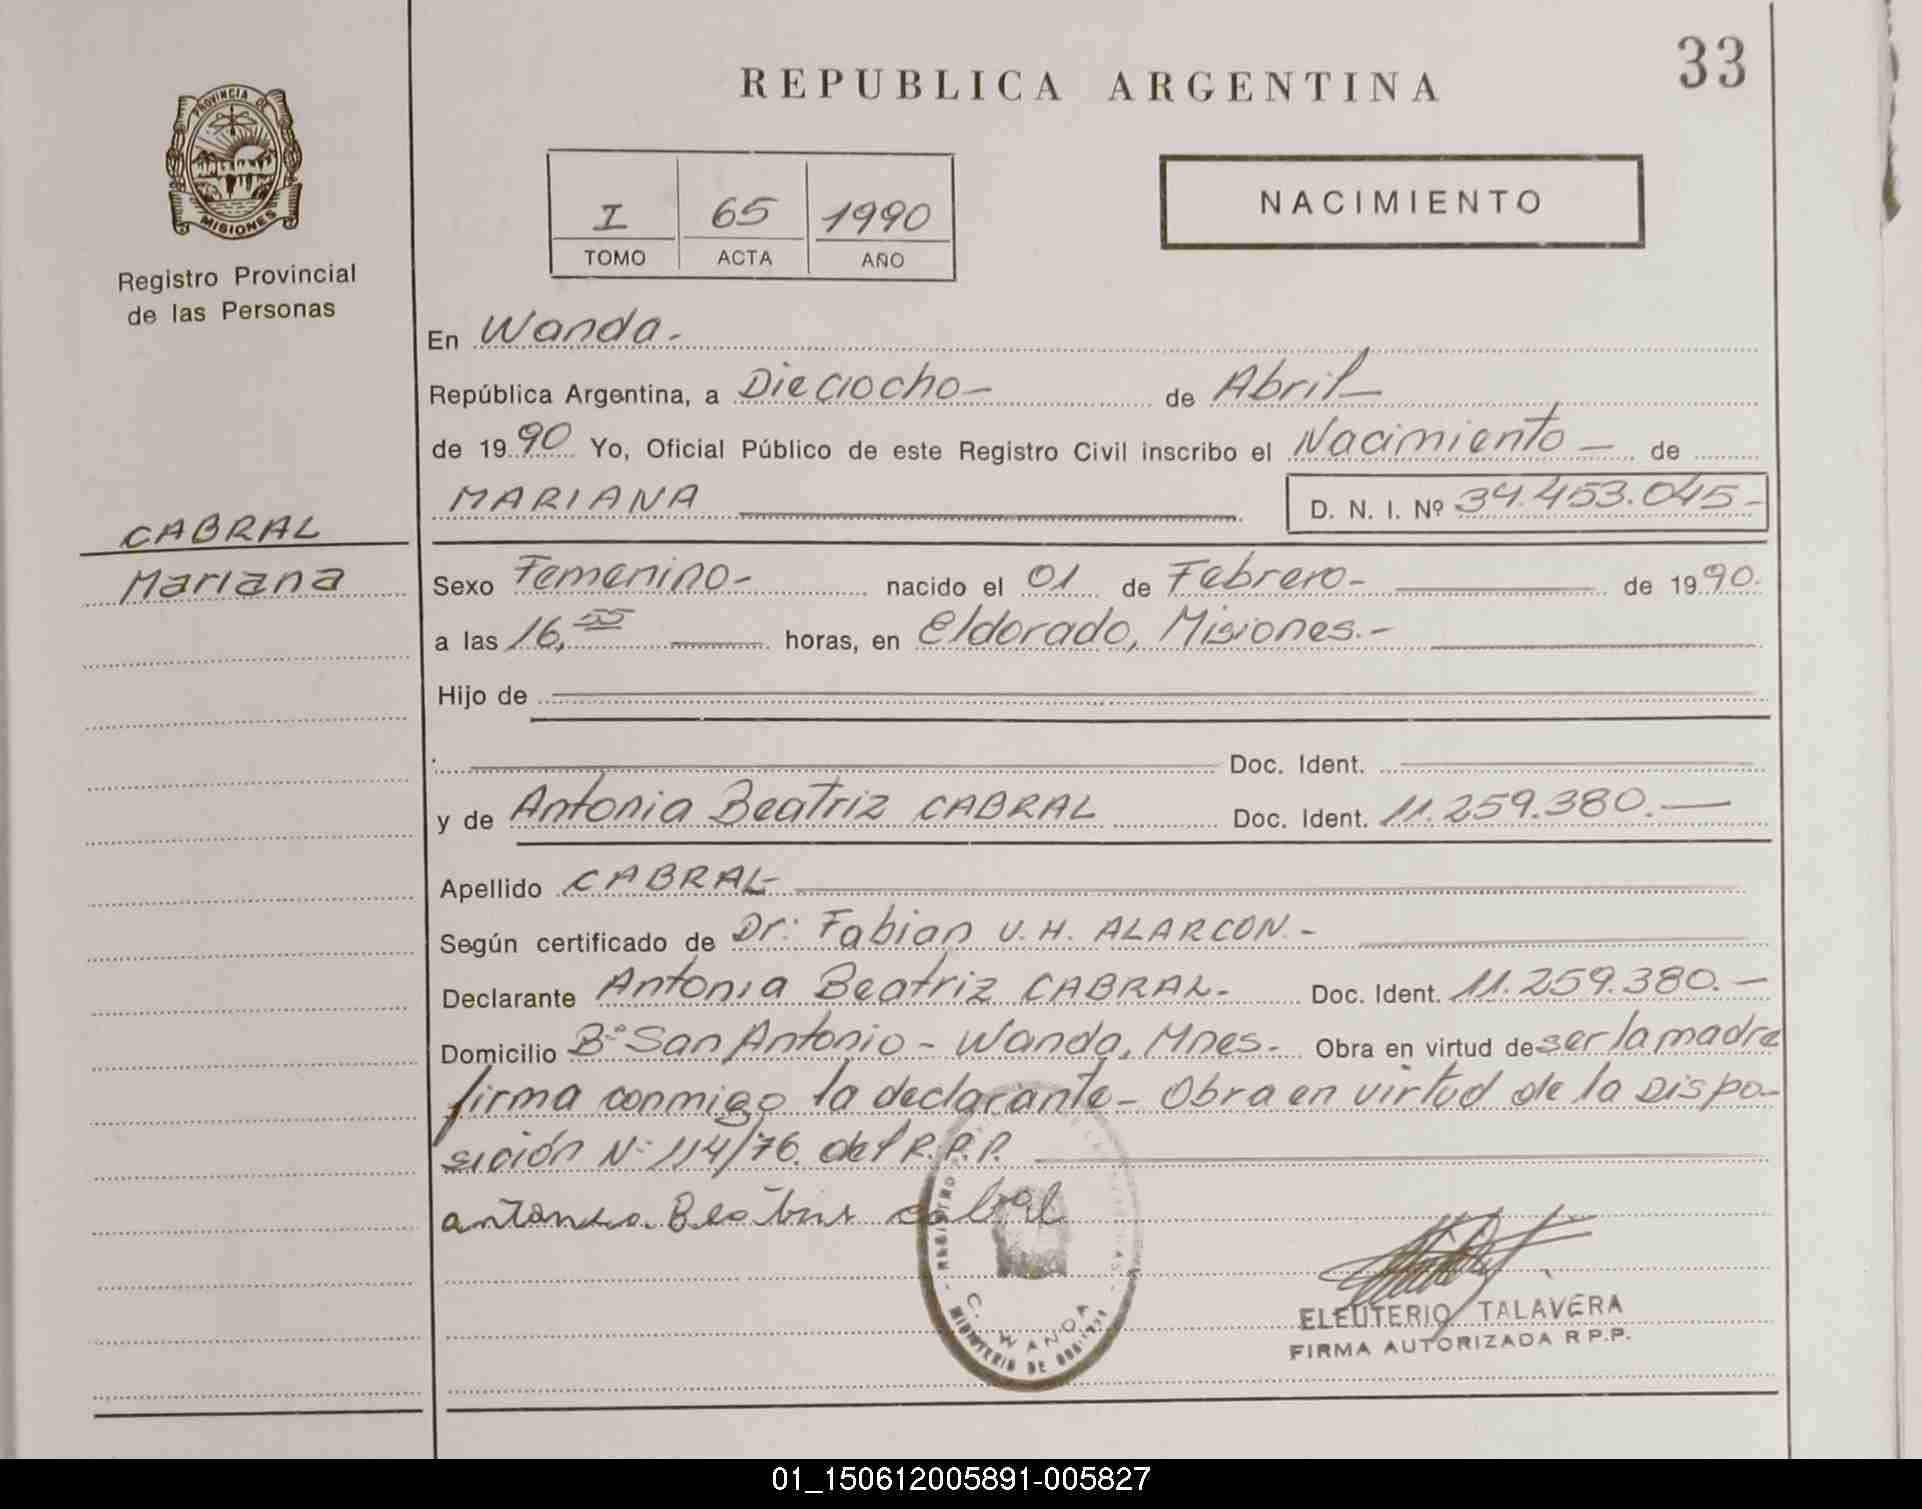 33
REPUBLICA ARGENTINA
PROVINCIA DE
MISIONES
Registro Provincial
de las Personas
I 65 1990
TOMO ACTA AÑO
NACIMIENTO
En Wanda.-
República Argentina, a Dieciocho- de Abril-
de 1990 Yo, Oficial Público de este Registro Civil inscribo el Nacimiento - de
MARIANA D. N. I. Nº 34.453.045-
CABRAL
Mariana
Sexo Femenino- nacido el 01 de Febrero- de 1990.
a las 16,55 horas, en Eldorado, Misiones.-
Hijo de
Doc. Ident.
y de Antonia Beatriz CABRAL Doc. Ident. 11.259.380.-
Apellido CABRAL-
Según certificado de Dr. Fabian U.H. ALARCON.-
Declarante Antonia Beatriz CABRAL- Doc. Ident. 11.259.380.-
Domicilio Bº San Antonio - Wanda, Mnes.- Obra en virtud de ser la madre
firma conmigo la declarante- Obra en virtud de la Dispo-
sición Nº 114/76. del R.P.P.
antonia Beatriz cabral
REGISTRO
C. WANDA
MINISTERIO DE GOBIERNO
ELEUTERIO TALAVERA
FIRMA AUTORIZADA R.P.P.
01_150612005891-005827